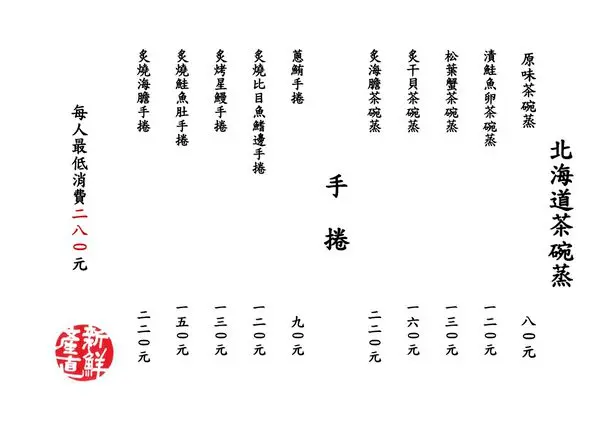 北海道茶碗蒸
原味茶碗蒸 八〇元
漬鮭魚卵茶碗蒸 一二〇元
松葉蟹茶碗蒸 一三〇元
炙干貝茶碗蒸 一六〇元
炙海膽茶碗蒸 二二〇元
手捲
蔥鮪手捲 九〇元
炙燒比目魚鰭邊手捲 一二〇元
炙烤星鰻手捲 一三〇元
炙燒鮭魚肚手捲 一五〇元
炙燒海膽手捲 二二〇元
每人最低消費二八〇元
新鮮
產直